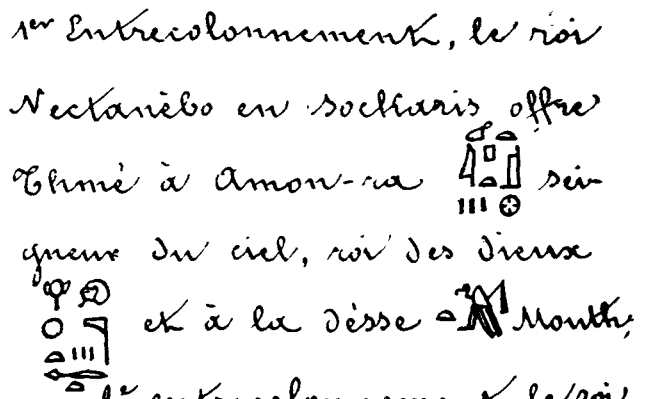 1er Entrecolonnement, le roi
Nectanèbo en sockharis offre
Thmé à Amon-ra sei-
gneur du ciel, roi des dieux
et à la désse Mouth,
entrecolonnement le roi